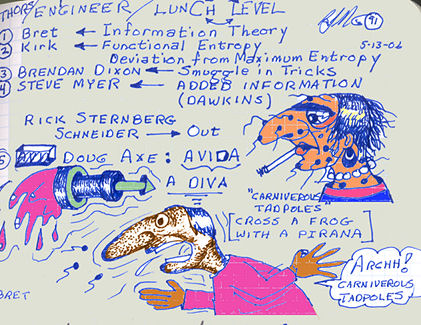 THORS/ENGINEER / LUNCH LEVEL
91
5-13-02
① Bret ← Information Theory
② Kirk ← Functional Entropy
Deviation from Maximum Entropy
③ BRENDAN DIXON ← Smuggle in Tricks
④ STEVE MYER ← ADDED INFORMATION
(DAWKINS)
RICK STERNBERG
SCHNEIDER → Out
⑤ DOUG AXE: AVIDA
A DIVA
"CARNIVEROUS
TADPOLES"
[CROSS A FROG
WITH A PIRANA]
ARCHH!
CARNIVEROUS
TADPOLES
BRET